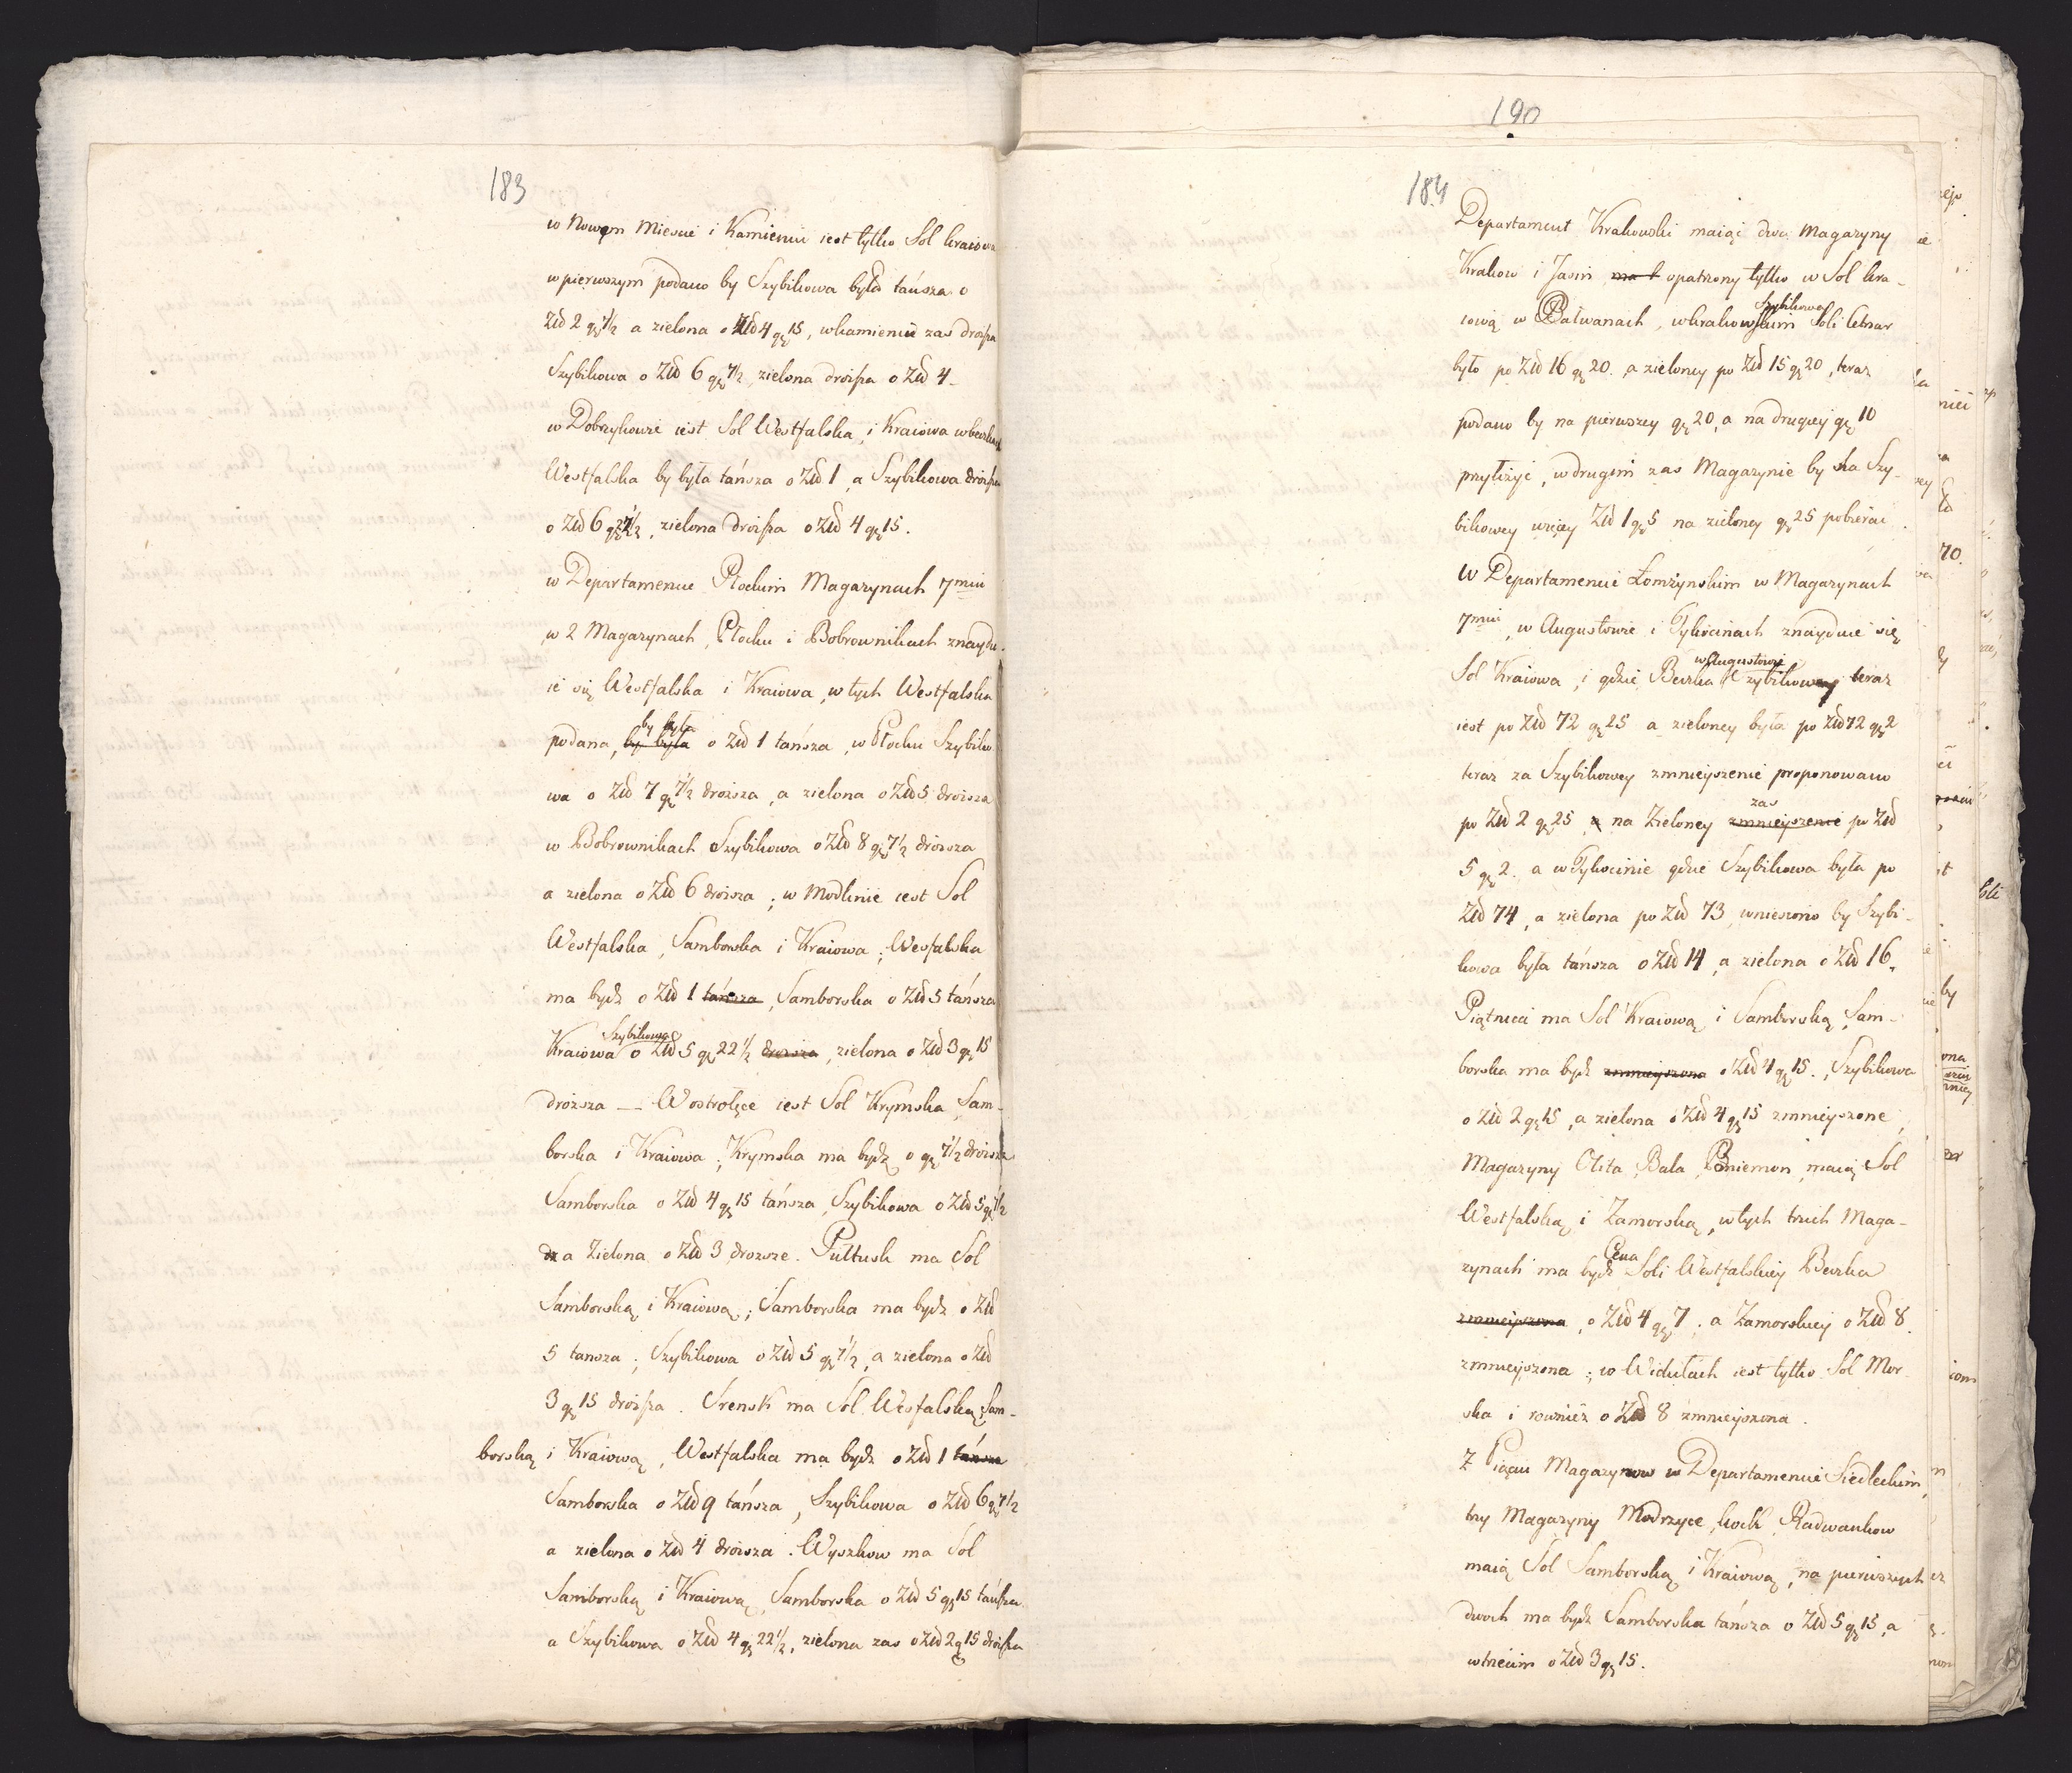 183
w Nowym Miescie i Kamieniu iest tylko Sol kraiowa
w pierwszym podano by Szybikowa była tańsza o
Złd 2 gr 7½ a zielona o Złd 4 gr 15, w kamieniu zas droższa
Szybikowa o Złd 6 gr 7½, zielona droższa o Złd 4 –
w Dobrzykowie iest Sol Westfalska, i Kraiowa w beczkach
Westfalska by była tańsza o Złd 1, a Szybikowa droższa
o Złd 6 gr 22½, zielona droższa o Złd 4 gr 15.
w Departamencie Płockim Magazynach 7miu
w 2 Magazynach, Płocku i Bobrownikach znaydu-
ie się Westfalska i Kraiowa, w tych Westfalska
by była
podana, by była o Złd 1 tańsza, w Płocku Szybiko
wa o Złd 7 gr 7½ droższa, a zielona o Złd 5 droższa
w Bobrownikach Szybikowa o Złd 8 gr 7½ droższa
a zielona o Złd 6 droższa; w Modlinie iest Sol
Westfalska, Samborska i Kraiowa; Wesfalska
ma bydź o Złd 1 tańsza, Samborska o Złd 5 tańsza
Szybikowa
Kraiowa o Złd 5 gr 22½ droższa, zielona o Złd 3 gr 15
droższa — W ostrołęce iest Sol Krymska Sam-
borska i Kraiowa; Krymska ma bydź o gr 7½ droższa
Samborska o Złd 4 gr 15 tańsza, Szybikowa o Złd 5 gr 7½
a Zielona o Złd 3 drozsze. Pułtusk ma Sol
Samborską i Kraiową; Samborska ma bydź o Złd
5 tansza; Szybikowa o Złd 5 gr 7½, a zielona o Złd
3 gr 15 droższa. Srensk ma Sol Wesfalską, Sam-
borską i Kraiową, Westfalska ma bydź o Złd 1 tańsza
Samborska o Złd 9 tańsza, Szybikowa o Złd 6 gr 7½
a zielona o Złd 4 droższa. Wyszkow ma Sol
Samborską i Kraiową, Samborska o Złd 5 gr 15 tańsza
a Szybikowa o Złd 4 gr 22½, zielona zas o Złd 2 gr 15 droższa
190
184
Departament Krakowski maiąc dwa Magazyny
Krakow i Jasin opatrzony tylko w Sol kra-
Szybikowey
iową w Bałwanach, w krakowskim Soli Cetnar
było po Złd 16 gr 20. a zieloney po Złd 15 gr 20, teraz
podano by na pierwszey gr 20, a na drugiey gr 10
przyłożyć, w drugim zas Magazynie by na Szy-
bikowey więcey Złd 1 gr 5 na zieloney gr 25 pobierać.
W Departamencie Łomżynskim w Magazynach
7miu, w Augustowie i Tykocinach znayduie się
w Augustowie
Sol Kraiowa, i gdzie Beczka Szybikowey teraz
iest po Złd 72 gr 25 a zieloney była po Złd 72 gr 2
teraz za Szybikowey zmnieyszenie proponowano
zas
po Złd 2 gr 25 na Zieloney zmnieyszenie po Złd
5 gr 2. a w Tykocinie gdzie Szybikowa była po
Złd 74, a zielona po Złd 73, wniesiono by Szybi-
kowa była tańsza o Złd 14, a zielona o Złd 16.
Piątnica ma Sol Kraiową i Samborską, Sam-
borska ma bydź zmnieyszona o Złd 4 gr 15., Szybikowa
o Złd 2 gr 15, a zielona o Złd 4 gr 15 zmnieyszone,
Magazyny Olita, Bala, Poniemon, maią Sol
Westfalską i Zamorską, w tych trzech Maga-
Cena
zynach ma bydź Soli Westfalskiey Beczka
zmnieyszona, o Złd 4 gr 7, a Zamorskiey o Złd 8.
zmnieyszona; w Widułach iest tylko Sol Mor-
ska i rownież o Złd 8 zmnieyszona.
Z Pięciu Magazynow w Departamencie Siedleckim,
trzy Magazyny Modrzyce, kock, Radwankow
maią Sol Samborską i Kraiową, na pierwszych
dwoch ma bydź Samborska tańsza o Złd 5 gr 15, a
w trzecim o Złd 3 gr 15.